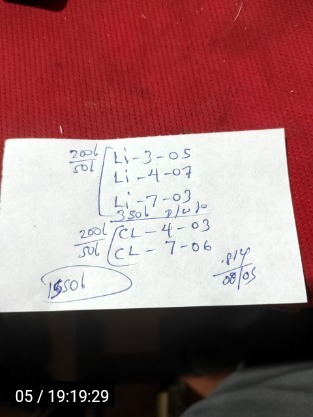 200L Li-3-05
50L Li-4-07
Li-7-03
350L
200L CL-4-03
50L CL-7-06
1550L
.814
08/05
05 / 19:19:29